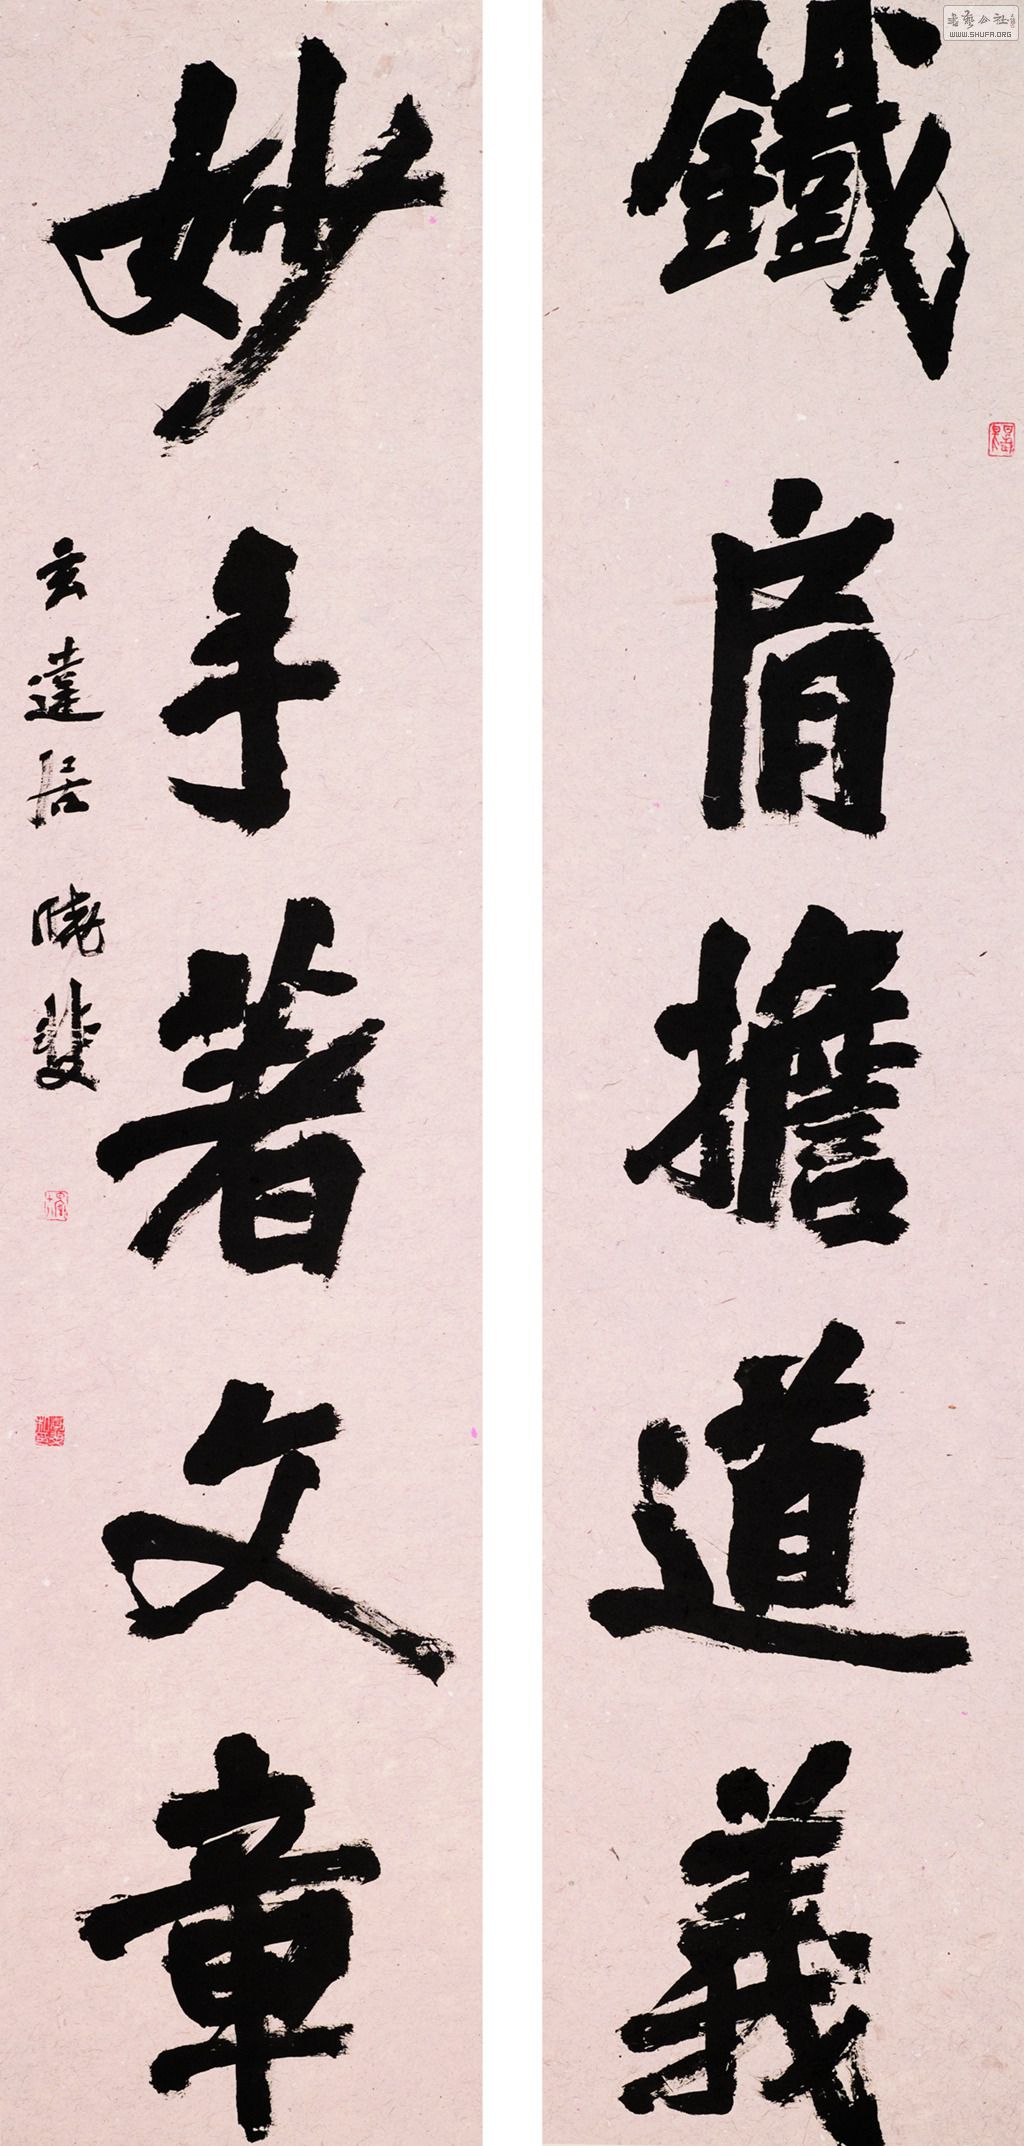 鐵肩擔道義
妙手著文章
玄達居 曉斐
書藝公社
WWW.SHUFA.ORG